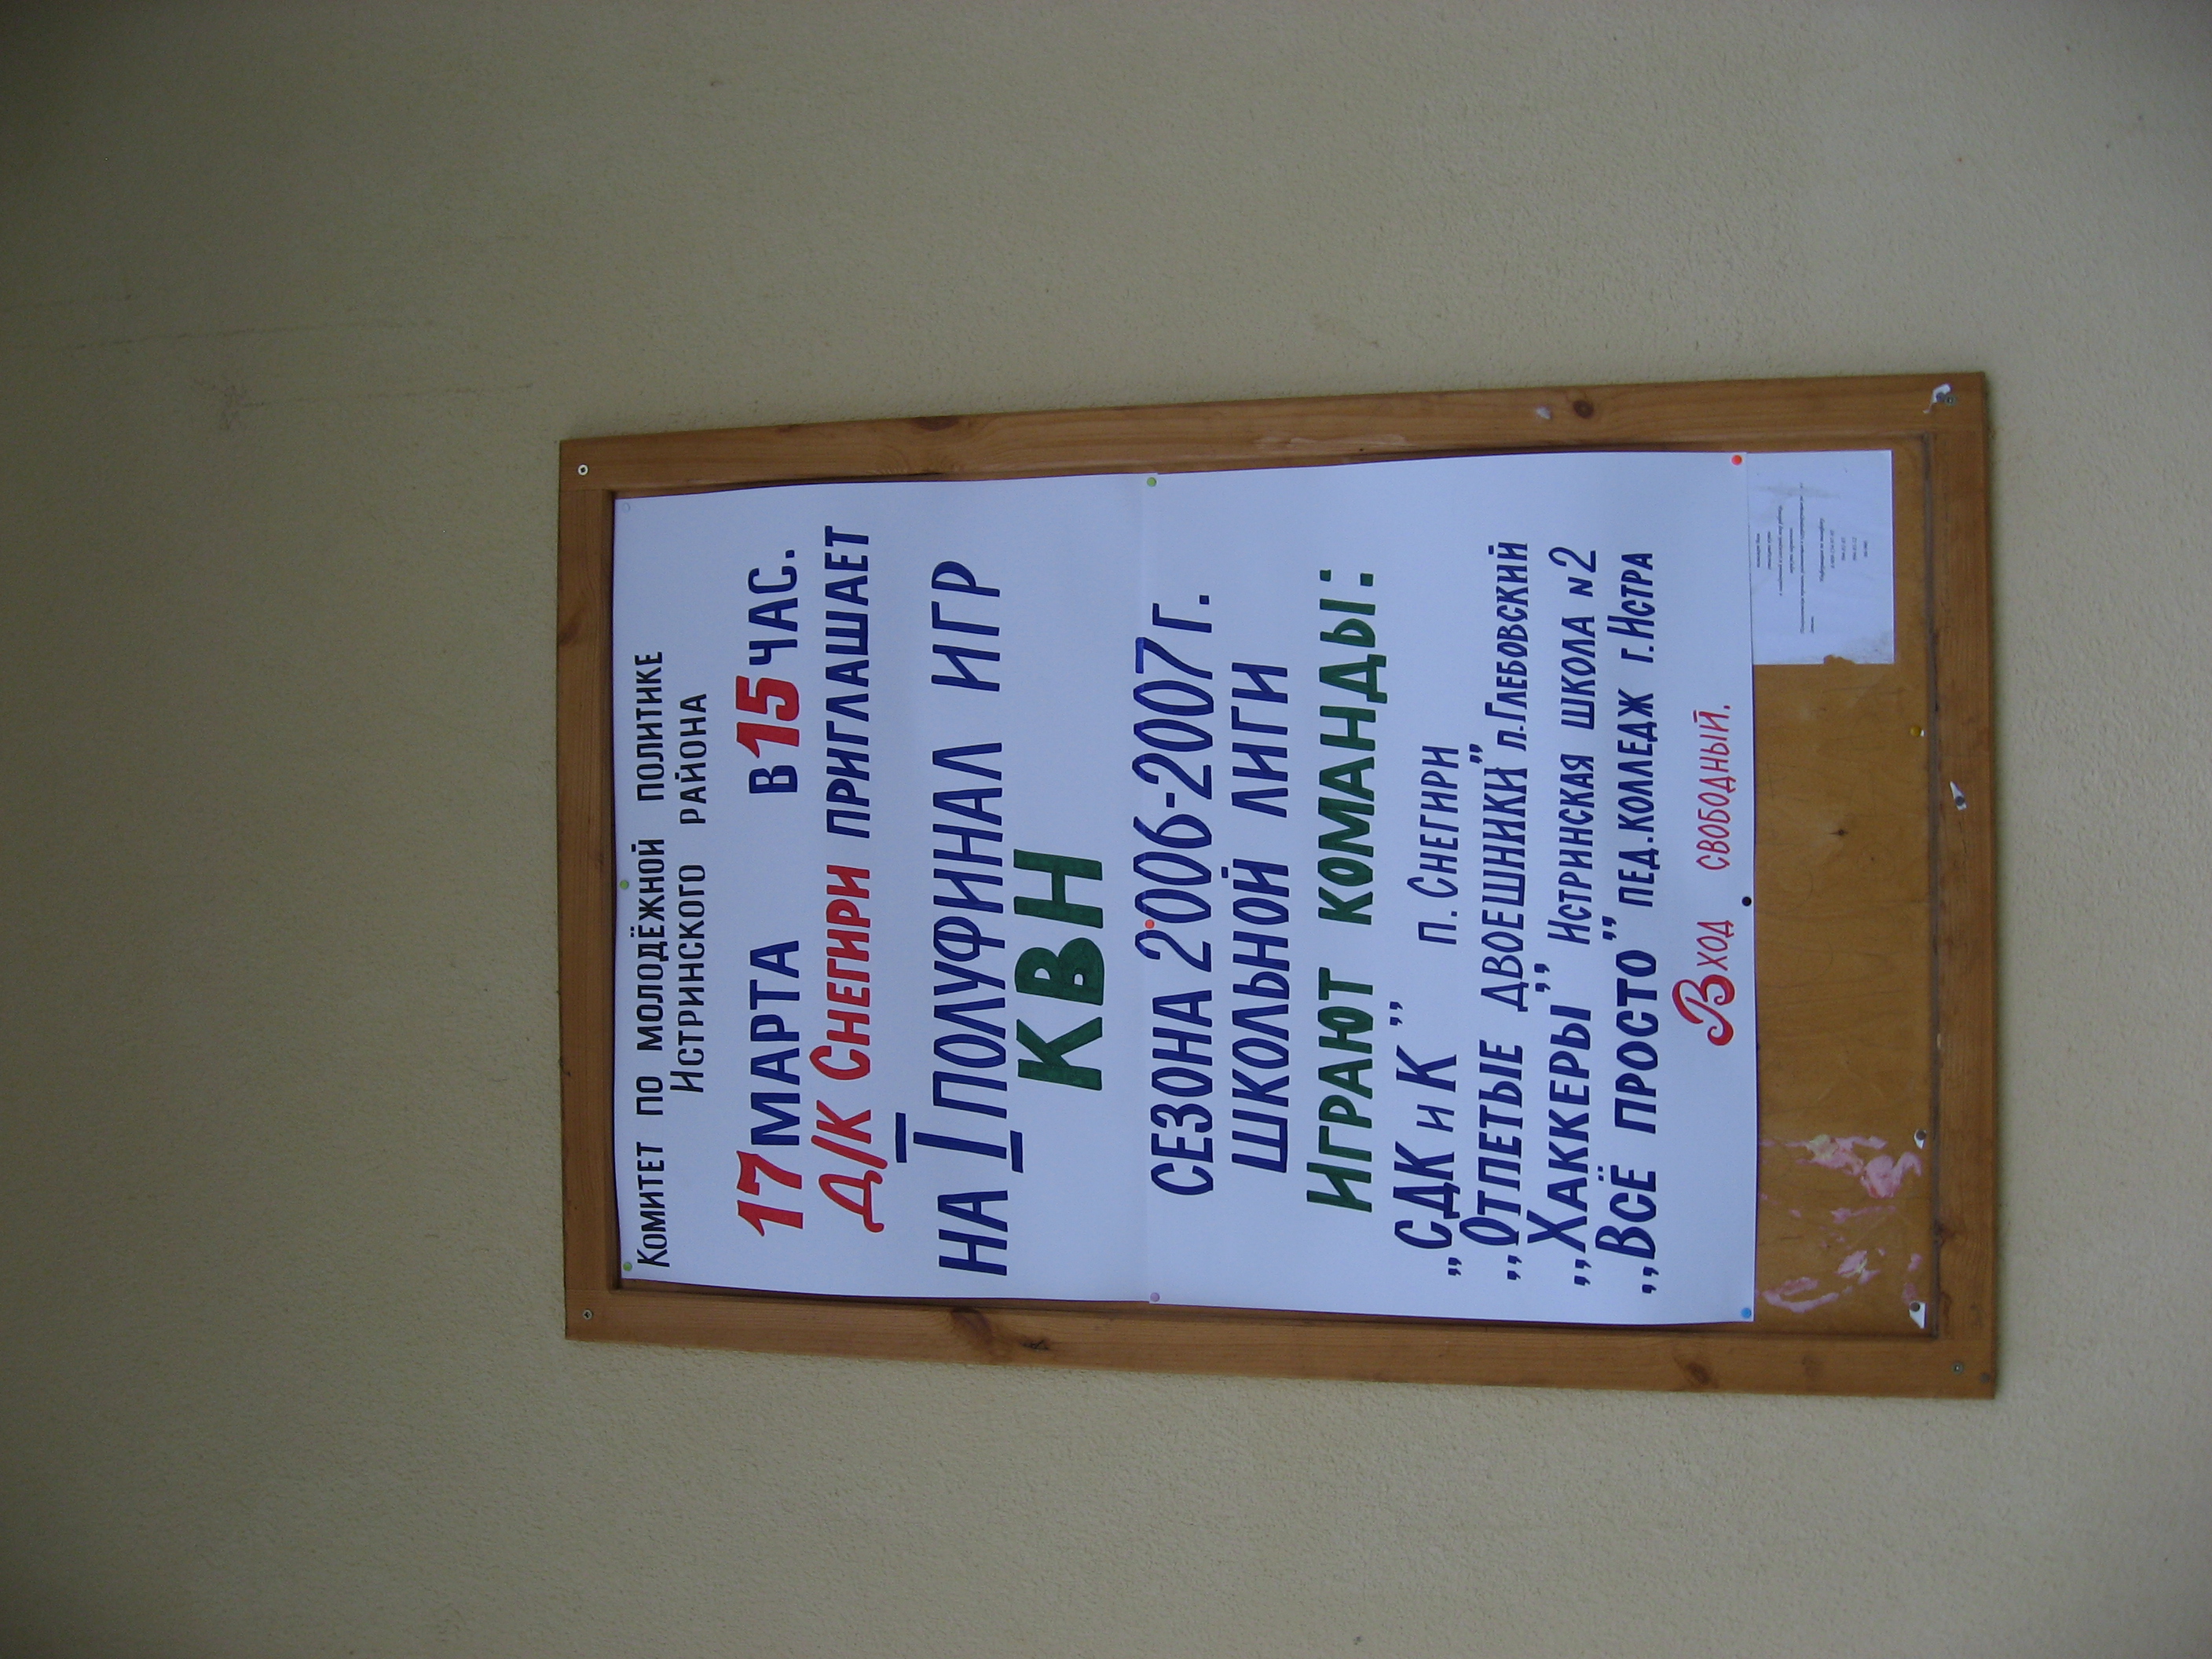 Комитет по молодёжной политике
Истринского района
17 марта в 15 час.
Д/К Снегири приглашает
на I полуфинал игр
КВН
сезона 2006-2007г.
школьной лиги
Играют команды:
„СДК и К” п. Снегири
„Отпетые двоешники” п. Глебовский
„Хаккеры” Истринская школа N2
„Всё просто” пед. колледж г. Истра
Вход свободный.
Информация по телефону